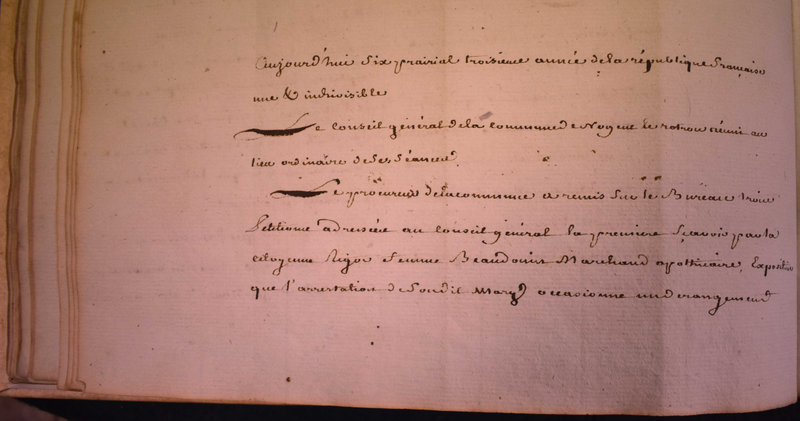 Aujourd'hui six prairial troisieme année de la république française
une & indivisible
Le Conseil général de la commune de Nogent le rotrou réuni au
lieu ordinaire de ses séances
Le procureur de la commune a remis sur le Bureau trois
Petitions adressées au conseil général la premiere sçavoir par la
citoyenne femme Beaudouin Marchand apothicaire, Expositive
que l'arrestation de son dit Mary occasionne un derangement